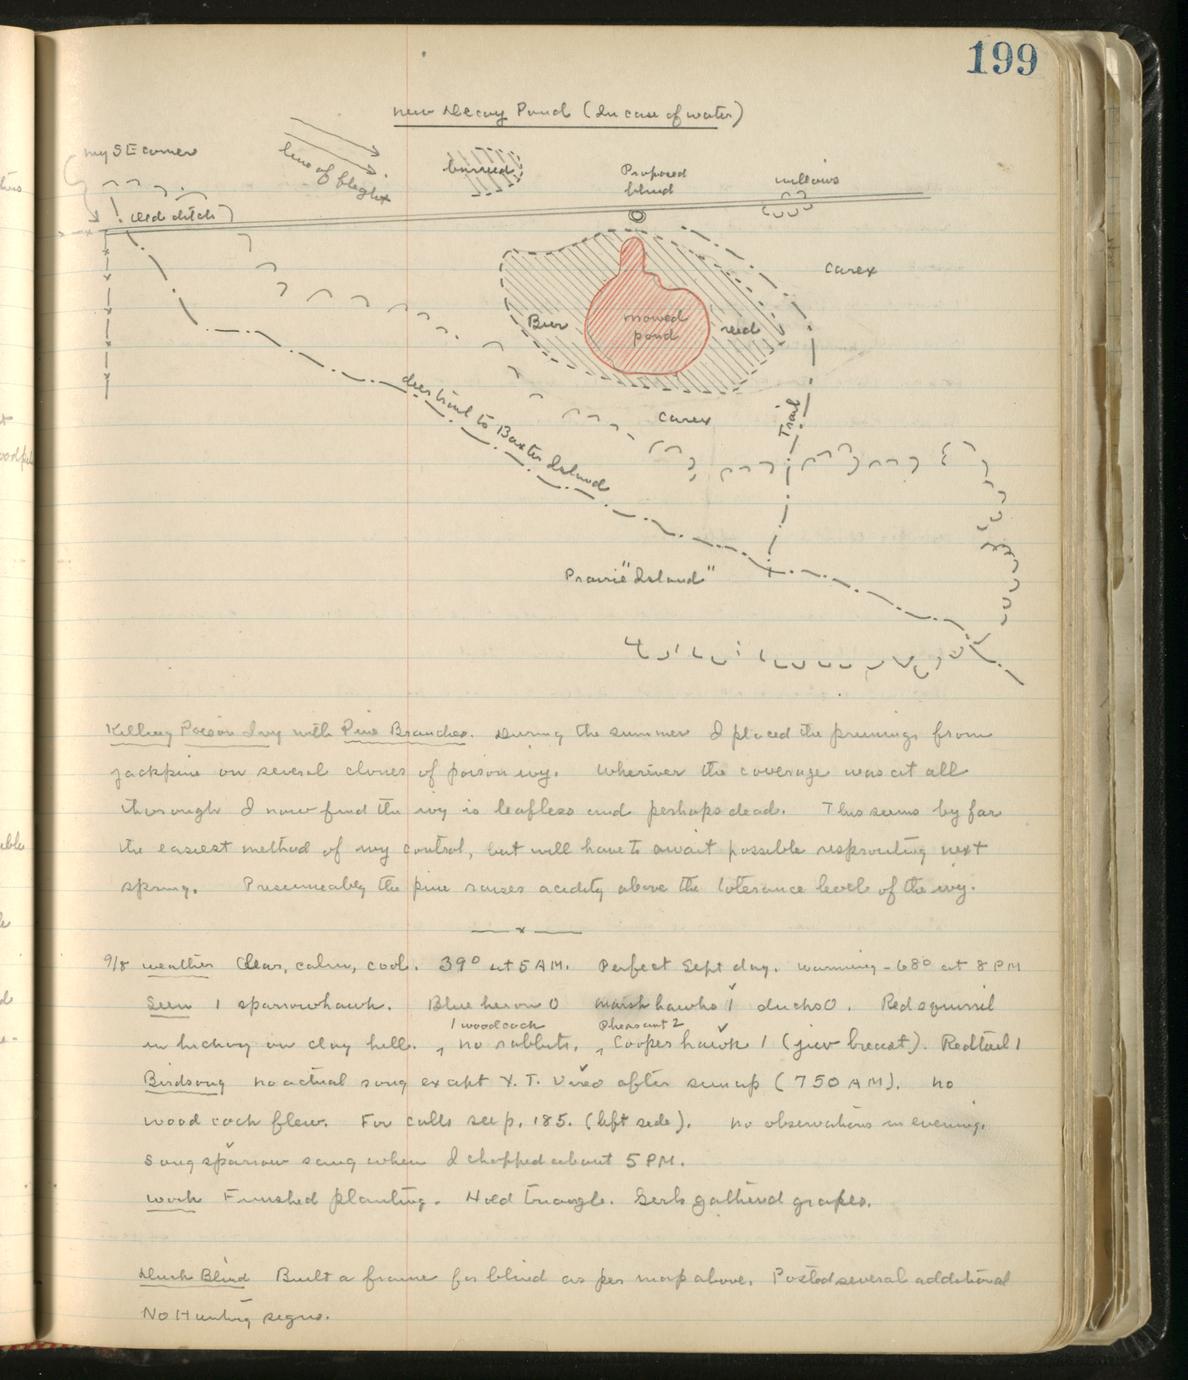 199
New Decoy Pond (In case of water)
my SE corner
line of flight
burned
Proposed
blind
willows
(old ditch)
Carex
Burr
mowed
pond
reed
deer trail to Baxter Island
Carex
Trail
Prairie "Island"
Killing Poison Ivy with Pine Branches. During the summer I placed the prunings from
jackpine on several clones of poison ivy. Wherever the coverage was at all
thorough I now find the ivy is leafless and perhaps dead. This seems by far
the easiest method of ivy control, but will have to await possible resprouting next
spring. Presumeabley the pine raises acidity above the tolerance level of the ivy.
9/8 Weather Clear, calm, cool. 39° at 5 AM. Perfect Sept day. Warming - 68° at 8 PM
Seen 1 sparrowhawk. Blue heron 0 marsh hawks 1 ducks 0. Red squirrel
1 woodcock Pheasant 2
in hickory on clay hill. no rabbits, Cooper hawk 1 (juv breast). Redtail 1
Birdsong no actual song except Y. T. Vireo after sunup (750 AM). No
woodcock flew. For calls see p. 185. (left side). No observations in evening.
Song sparrow sang when I chopped about 5 PM.
Work Finished planting. Hoed triangle. Girls gathered grapes.
Duck Blind Built a frame for blind as per map above. Posted several additional
No Hunting signs.